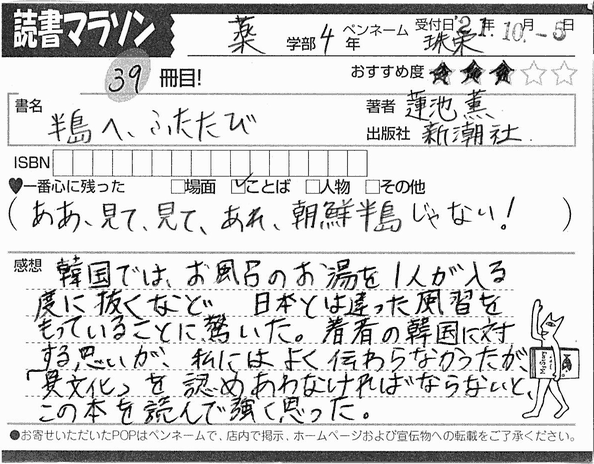 読書マラソン
薬 学部 4 年 ペンネーム 珠栄 受付日 '21年10月-5日
39 冊目! おすすめ度 ★★★☆☆
書名 半島へ、ふたたび
著者 蓮池薫
出版社 新潮社
ISBN
♥一番心に残った □場面 ☑ことば □人物 □その他
(ああ、見て、見て、あれ、朝鮮半島じゃない!)
感想 韓国では、お風呂のお湯を1人が入る
度に抜くなど 日本とは違った風習を
もっていることに驚いた。著者の韓国に対
する思いが、私にはよく伝わらなかったが
「異文化」を認めあわなければならないと、
この本を読んで強く思った。
●お寄せいただいたPOPはペンネームで、店内で掲示、ホームページおよび宣伝物への転載をご了承ください。